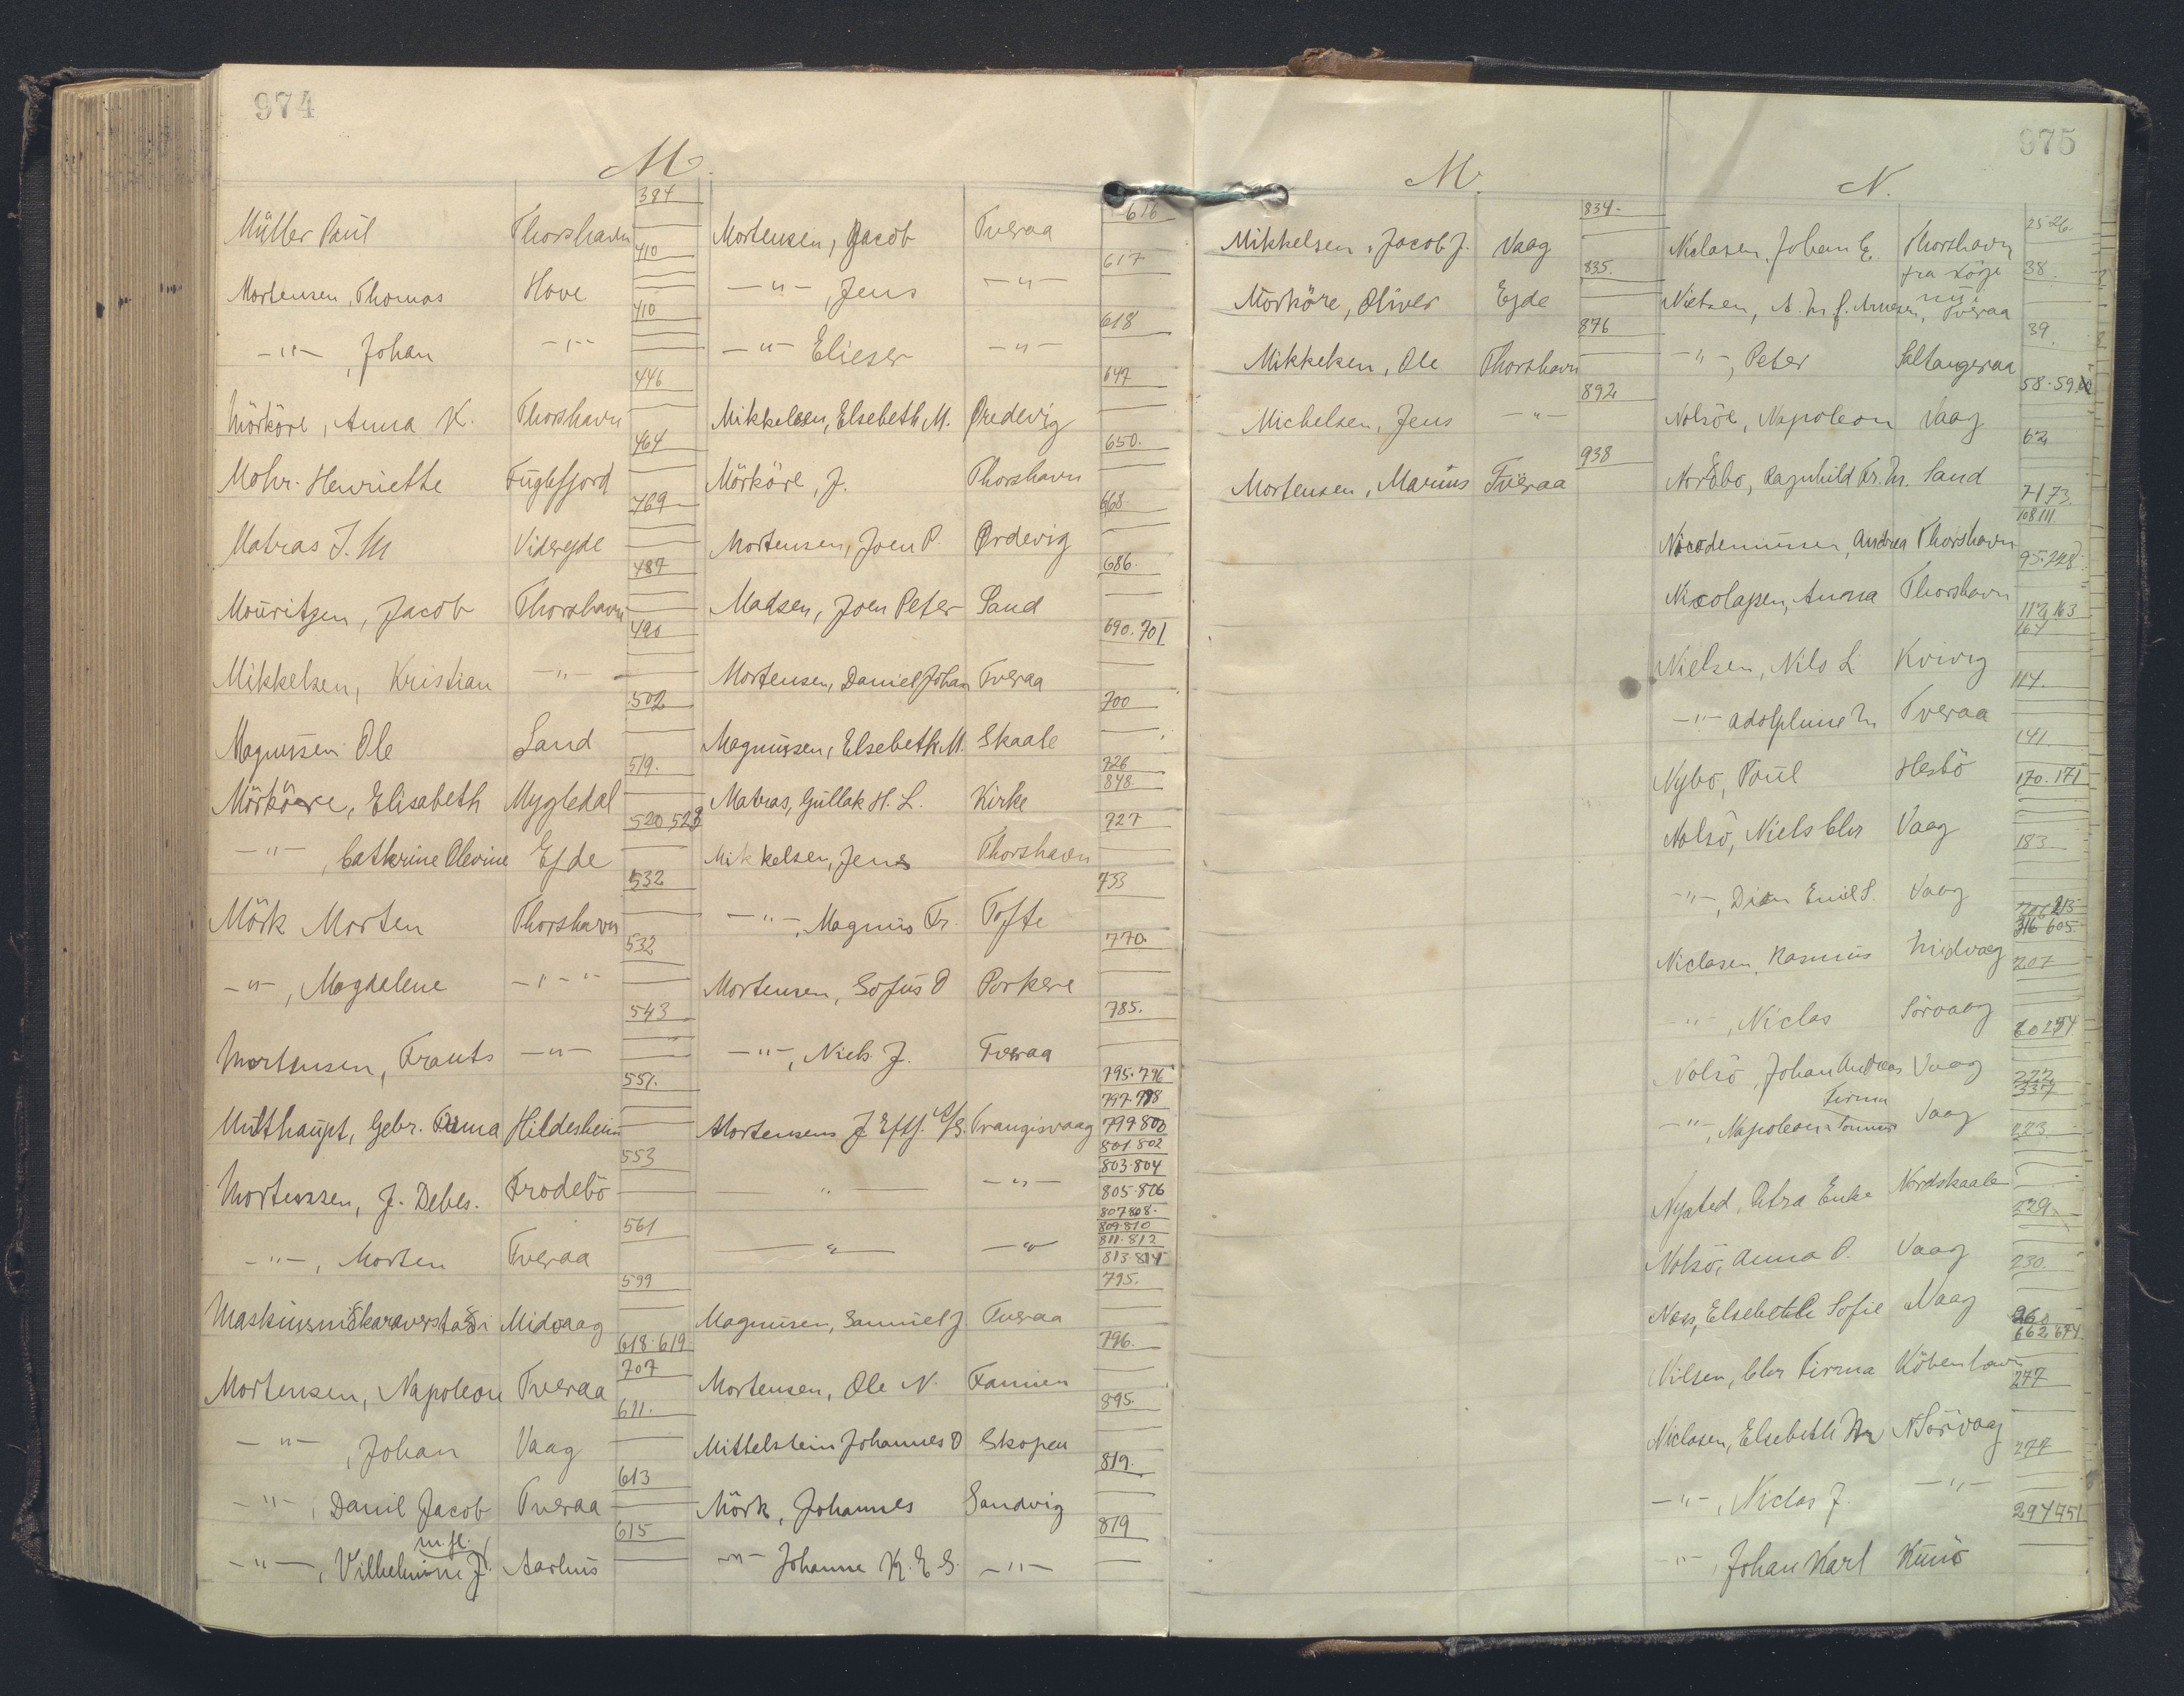 974
M.
384
Müller Paul Thorshavn
410
Mortensen, Thomas Hove
410
-"-, Johan -"-
446
Mörköre, Anna K. Thorshavn
464
Mohr Henriette Fuglefjord
469
Matras J. M Viderejde
487
Mouritzen, Jacob Thorshavn
490
Mikkelsen, Kristian -"-
502
Magnussen Ole Sand
519.
Mörköre, Elisabeth Mygledal
520 523
-"-, Cathrine Olevine Ejde
532
Mörk Morten Thorshavn
532
-"-, Magdalene -"-
543
Mortensen, Frants -"-
551.
Multhaupt, Gebr. Firma Hildesheim
553
Mortensen, J. Debes. Frodebö
561
-"-, Morten Tveraa
599
Midvaag
618-619
707
Mortensen, Napoleon Tveraa
611.
-"-, Johan Vaag
613
-"-, Danil Jacob Tveraa
615
m.fl.
-"-, Vilhelmine J. Aarhus
616
Mortensen, Jacob Tveraa
617
-"-, Jens -"-
618
-"- Elieser -"-
647
Mikkelsen, Elsebeth M. Øredevig
650.
Mörköre, J. Thorshavn
668.
Mortensen, Joen P. Ørdevig
686.
Madsen, Joen Peter Sand
690. 701
Mortensen, Daniel Johan Tveraa
700
Magnussen, Elsebeth M. Skaale
726
848
Matras, Gullak H. L. Kirke
727
Mikkelsen, Jens Thorshavn
733
-"-, Magnus Fr. Tofte
770.
Mortensen, Sofus O Porkere
785.
-"-, Niels J. Tveraa
795.796
797.798
Mortensens J Eftf. A/S. Trangisvaag 799 800
801.802
803.804
-"- -"- 805.806
807 808.
809.810
811.812
-"- -"- 813.814
795.
Magnusen, Samuel J. Tveraa
796.
Mortensen, Ole N. Famien
895.
Mittelstein Johannes O Skopen
819.
Mörk, Johannes Sandvig
819
-"- Johanne K. E S. -"-
975
M.
834.
Mikkelsen, Jacob J. Vaag
835.
Mörköre, Oliver Ejde
876
Mikkelsen, Ole Thorshavn
892
Michelsen, Jens -"-
938
Mortensen, Marius Tveraa
N.
25-26.
Niclasen, Johan E. Thorshavn
38.
Nielsen, A. M. f. Arnesen, Tveraa
39.
-"-, Peter Saltangeraa
58.59.
Nolsöe, Napoleon Vaag
62
Nordbo, Ragnhild Fr. M. Sand
71 73.
108 111
Nicodemussen, Andrea Thorshavn
95.248
Nicolajsen, Anna Thorshavn
112, 163
164
Nielsen, Nils L Kvivig
114.
-"- Adolphine M Tveraa
141.
Nybo, Poul Hestö
170. 171
Nolsö, Niels Chr Vaag
183
-"-, Emil S. Vaag
215
316 605.
Niclasen, Rasmus Midvaag
207
-"-, Niclas Sörvaag
Nolsö, Johan Andreas Vaag
222
337
Firma
-"-, Napoleon Sönner Vaag
223
Nysted, Petra Enke Nordskaale
229.
Nolsö, Anna O. Vaag
230.
Næs, Elsebeth Sofie Vaag
260
662, 674
Nilsen, Chr Firma Köbenhavn
247
Niclasen, Elsebeth M Sörvaag
277
-"-, Niclas J. -"-
294 951
-"-, Johan Karl Kunö